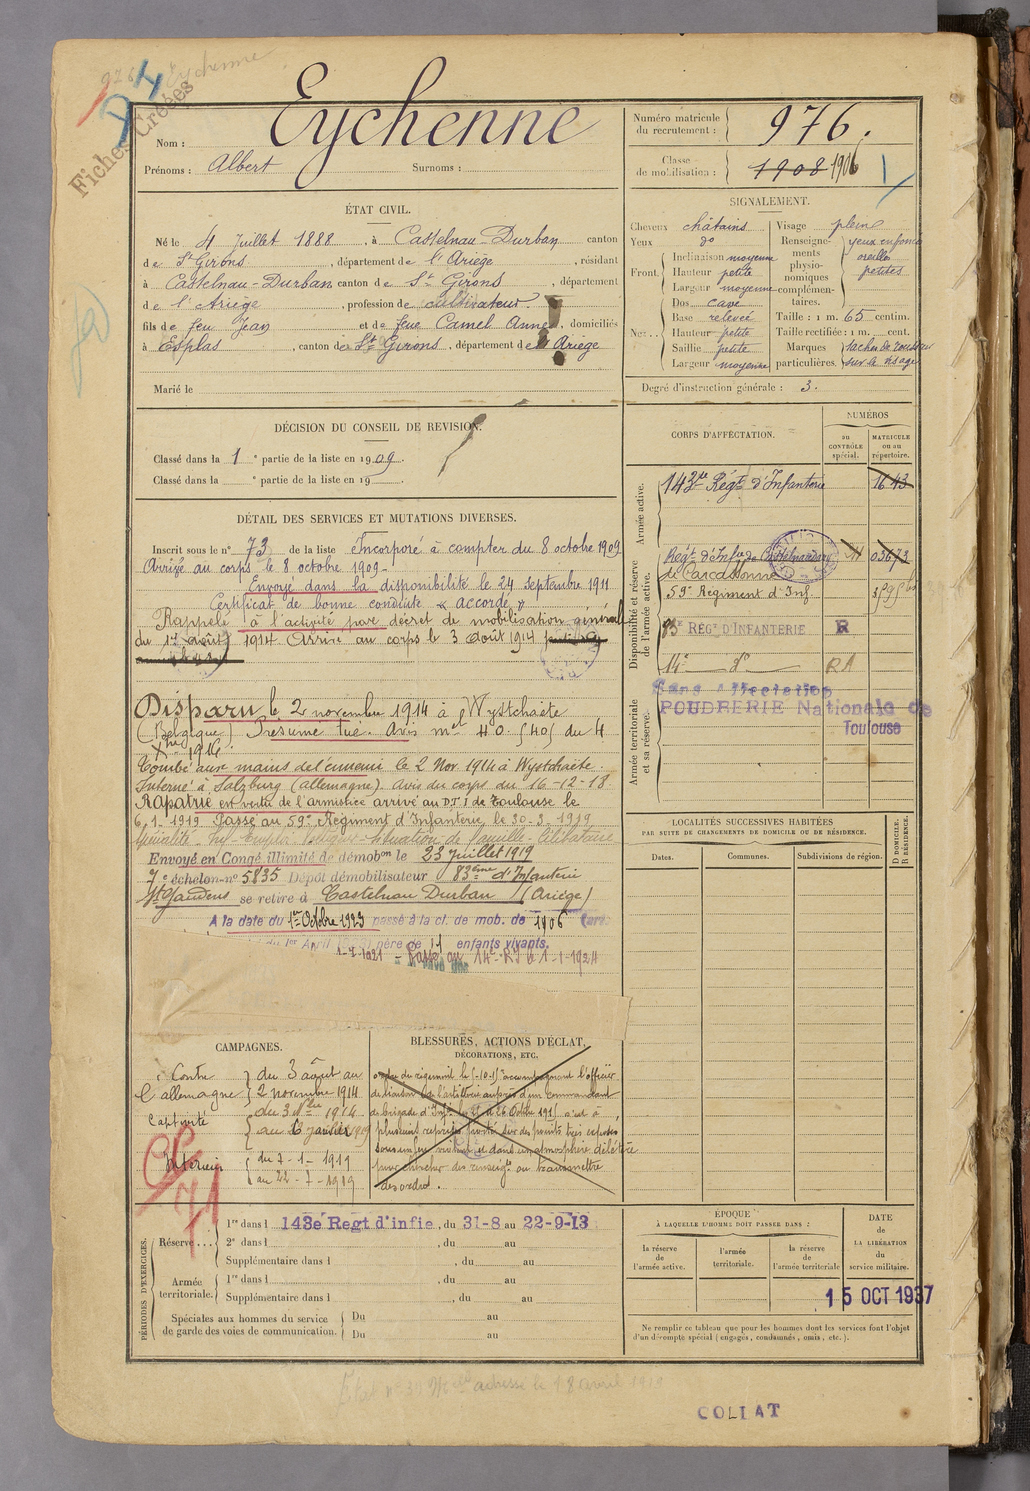 926 Eychenne
D I
Fiches Créées
Nom : Eychenne
Prénoms : Albert Surnoms :
Numéro matricule du recrutement : 976.
Classe de mobilisation : 1908 1906
ÉTAT CIVIL.
Né le 4 Juillet 1888, à Castelnau-Durban canton
de St Girons, département de l'Ariège, résidant
à Castelnau-Durban canton de St Girons, département
de l'Ariège, profession de cultivateur
fils de feu Jean et de feue Camel Anne, domiciliés
à Esplas, canton de St Girons, département de l'Ariège
Marié le
SIGNALEMENT.
Cheveux châtains
Yeux do
Front. Inclinaison moyenne
Hauteur petite
Largeur moyenne
Nez Dos cave
Base relevée
Hauteur petite
Saillie petite
Largeur moyenne
Visage plein
Renseignements physionomiques complémentaires. yeux enfoncés oreilles petites
Taille : 1 m. 65 centim.
Taille rectifiée : 1 m. cent.
Marques particulières. taches de rousseur sur le visage
Degré d'instruction générale : 3.
DÉCISION DU CONSEIL DE REVISION.
Classé dans la 1e partie de la liste en 1909.
Classé dans la e partie de la liste en 19
DÉTAIL DES SERVICES ET MUTATIONS DIVERSES.
Inscrit sous le n° 73 de la liste Incorporé à compter du 8 octobre 1909
Arrivé au corps le 8 octobre 1909-
Envoyé dans la disponibilité le 24 septembre 1911
Certificat de bonne conduite « accordé »
Rappelé à l'activité par décret de mobilisation générale
du 1er août 1914 Arrivé au corps le 3 Août 1914
Disparu le 2 novembre 1914 à Wystchaëte
(Belgique) Présumé tué. Avis mel 40. 540 du 4
Xbre 1914.
Tombé aux mains de l'ennemi le 2 Nov. 1914 à Wystchaëte
Interné à Salzburg (allemagne). Avis du corps du 16-12-18.
Rapatrié en vertu de l'armistice arrivé au DTI de Toulouse le
6.1.1919 Passé au 59e Régiment d'Infanterie, le 30-3-1919
Situation de famille - Célibataire
Envoyé en Congé illimité de démobon le 23 Juillet 1919
7e échelon-n° 5835 Dépôt démobilisateur 83ème d'Infanterie
St Gaudens se retire à Castelnau Durban (Ariège)
A la date du 1er Octobre 1923 passé à la cl. de mob. de 1906
du 1er Avril père de enfants vivants.
1-7-1921 - Passé au 14e RI le 1-1-1924
CORPS D'AFFECTATION.
NUMÉROS
au CONTRÔLE spécial.
MATRICULE ou au répertoire.
Armée active.
143e Régt d'Infanterie 1643
Disponibilité et réserve de l'armée active.
Régt d'Infie de Castelnaudary 03673
de Carcassonne
59e Régiment d'Inf.
83E RÉGT D'INFANTERIE R
14e do RA
Armée territoriale et sa réserve.
Sans affectation
POUDRERIE Nationale de
Toulouse
LOCALITÉS SUCCESSIVES HABITÉES
PAR SUITE DE CHANGEMENTS DE DOMICILE OU DE RÉSIDENCE.
Dates. Communes. Subdivisions de région. D DOMICILE. R RÉSIDENCE.
CAMPAGNES.
Contre l'allemagne du 3 août au 2 novembre 1914
Captivité du 3 Nbre 1914 au 6 janvier 1919
Intérieur du 7-1-1919 au 22-7-1919
BLESSURES, ACTIONS D'ÉCLAT,
DÉCORATIONS, ETC.
ordre du régiment accompagnant l'officier
de liaison de l'artillerie auprès d'un commandant
de brigade d'Infie 25 et 26 Octobre 1915 s'est à
plusieurs reprises porté sur des points très exposés
sous un feu violent et dans une atmosphère délétère
pour chercher des renseigts ou transmettre
des ordres.
PÉRIODES D'EXERCICES.
Réserve... 1re dans l 143e Régt d'infie, du 31-8 au 22-9-13
2e dans l , du au
Supplémentaire dans l , du au
Armée territoriale. 1re dans l , du au
Supplémentaire dans l , du au
Spéciales aux hommes du service de garde des voies de communication. Du au
Du au
ÉPOQUE
À LAQUELLE L'HOMME DOIT PASSER DANS :
la réserve de l'armée active.
l'armée territoriale.
la réserve de l'armée territoriale
DATE de LA LIBÉRATION du service militaire.
15 OCT 1937
Ne remplir ce tableau que pour les hommes dont les services font l'objet
d'un décompte spécial (engagés, condamnés, omis, etc.).
COLIAT